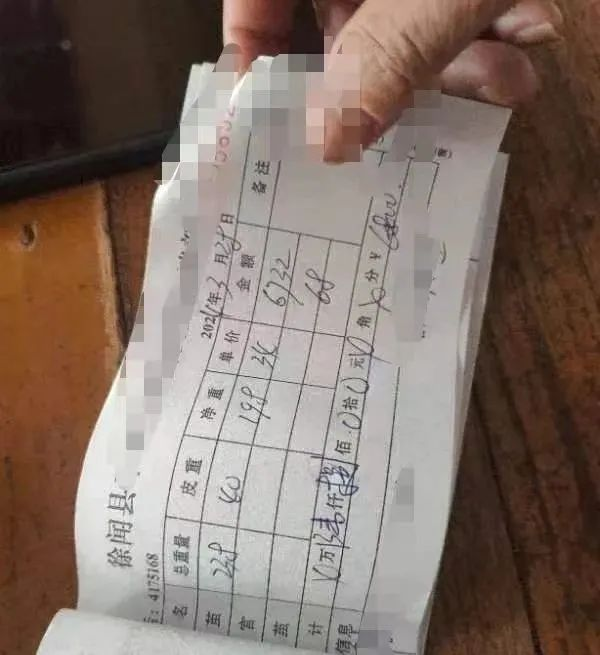 徐闻县
号：4175168 2021年3月28日
名 总重量 皮重 净重 单价 金额 备注
茧 238 40 198 34 6732
宫 68
茧
计 0万陆仟捌佰0拾0元0角0分 ¥6800.
信息